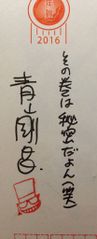 2016
その巻は秘密だよん(笑)
青山剛昌